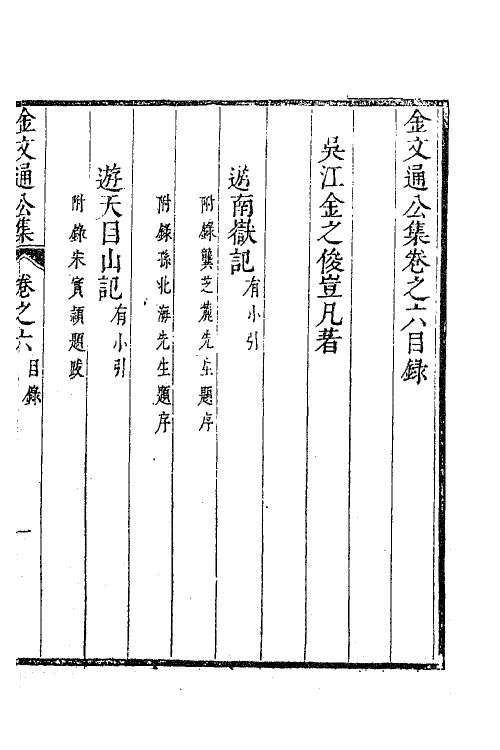 金文通公集卷之六目録
吳江金之俊豈凡著
遊南嶽記有小引
附錄龔芝麓先生題序
附錄孫北海先生題序
遊天目山記有小引
附錄朱實頴題跋
金文通公集 卷之六 目錄 一